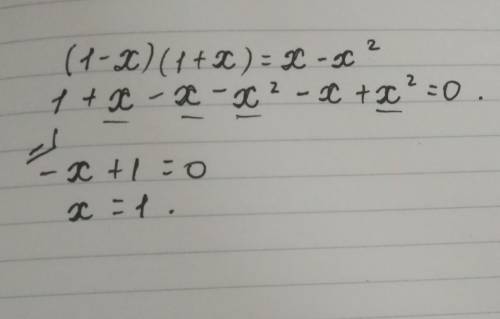 (1-x)(1+x)=x-x²
1+x-x-x²-x+x²=0.
-x+1=0
x=1.